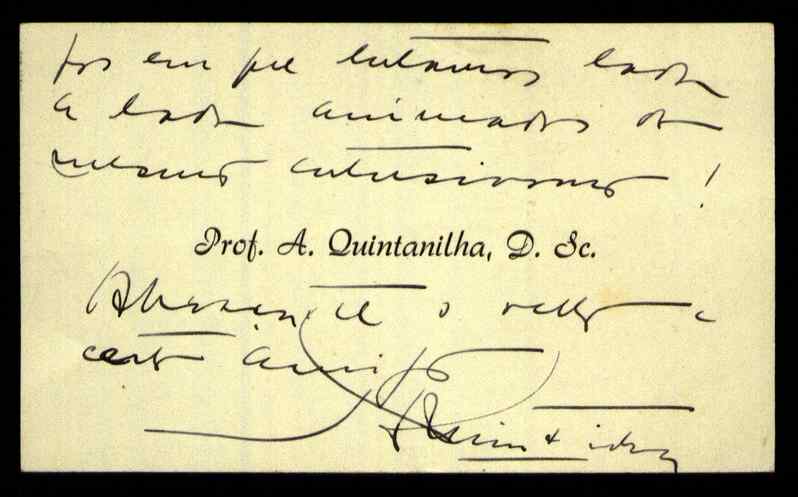 por que lutamos lado
a lado animados do
mesmo entusiasmo!
Prof. A. Quintanilha, D. Sc.
Abraça-te o velho e
certo amigo
Quintanilha